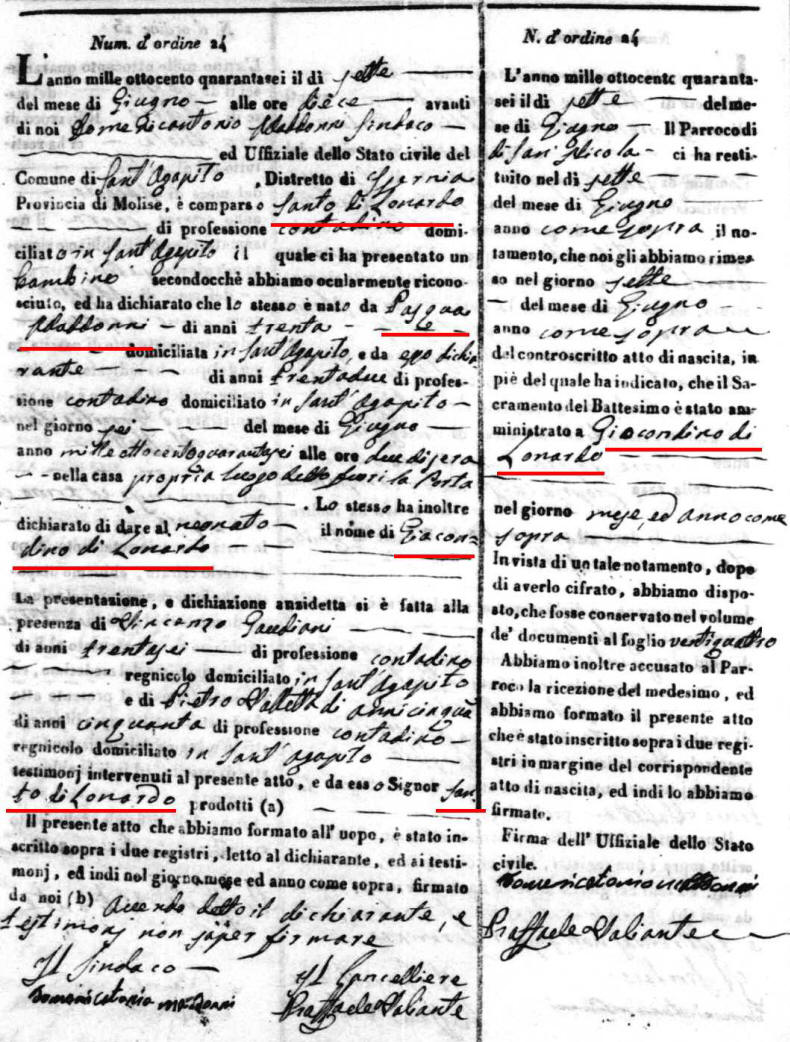 Num. d'ordine 24
L'anno mille ottocento quarantasei il dì sette
del mese di Giugno alle ore dièce avanti
di noi Domenicantonio Maddonni Sindaco
ed Uffiziale dello Stato civile del
Comune di Sant'Agapito, Distretto di Isernia
Provincia di Molise, è comparso Santo di Lonardo
di professione contadino domi-
ciliato in Sant'Agapito il quale ci ha presentato un
bambino secondocchè abbiamo ocularmente ricono-
sciuto, ed ha dichiarato che lo stesso è nato da Pasqua
le Maddonni di anni trenta
domiciliata in Sant'Agapito, e da esso dichia
rante di anni trentadue di profes-
sione contadino domiciliato in Sant'Agapito
nel giorno sei del mese di Giugno
anno mille ottocentoquarantasei alle ore due di sera
nella casa propria luogo detto fuori la Porta
. Lo stesso ha inoltre
dichiarato di dare al neonato il nome di Giacon=
dino di Lonardo
La presentazione, e dichiazione anzidetta si è fatta alla
presenza di Vincenzo Gaudiani
di anni trentasei di professione contadino
regnicolo domiciliato in Sant'Agapito
e di Pietro Valletta di anni cinqua
di anni cinquanta di professione contadino
regnicolo domiciliato in Sant'Agapito
testimonj intervenuti al presente atto, e da esso Signor San
to di Lonardo prodotti (a)
Il presente atto che abbiamo formato all'uopo, è stato in-
scritto sopra i due registri, letto al dichiarante, ed ai testi-
monj, ed indi nel giorno mese ed anno come sopra, firmato
da noi (b) Avendo detto il dichiarante, e
testimonj non saper firmare
Il Sindaco
Domenicatonio Maddonni
Il Cancelliere
Raffaele Valiante
N. d'ordine 24
L'anno mille ottocento quaranta-
sei il dì sette del me-
se di Giugno Il Parroco di
di San Nicola ci ha resti-
tuito nel dì sette
del mese di Giugno
anno come sopra il no-
tamento, che noi gli abbiamo rimes
so nel giorno sette
del mese di Giugno
anno come sopra
del controscritto atto di nascita, in
piè del quale ha indicato, che il Sa-
cramento del Battesimo è stato am-
ministrato a Giocondino di
Lonardo
nel giorno mese, ed anno come
sopra
In vista di un tale notamento, dopo
di averlo cifrato, abbiamo dispo-
sto, che fosse conservato nel volume
de' documenti al foglio ventiquattro
Abbiamo inoltre accusato al Par-
roco la ricezione del medesimo, ed
abbiamo formato il presente atto
che è stato inscritto sopra i due regi-
stri in margine del corrispondente
atto di nascita, ed indi lo abbiamo
firmato.
Firma dell' Uffiziale dello Stato
civile.
Domenicatonio Maddonni
Raffaele Valiante